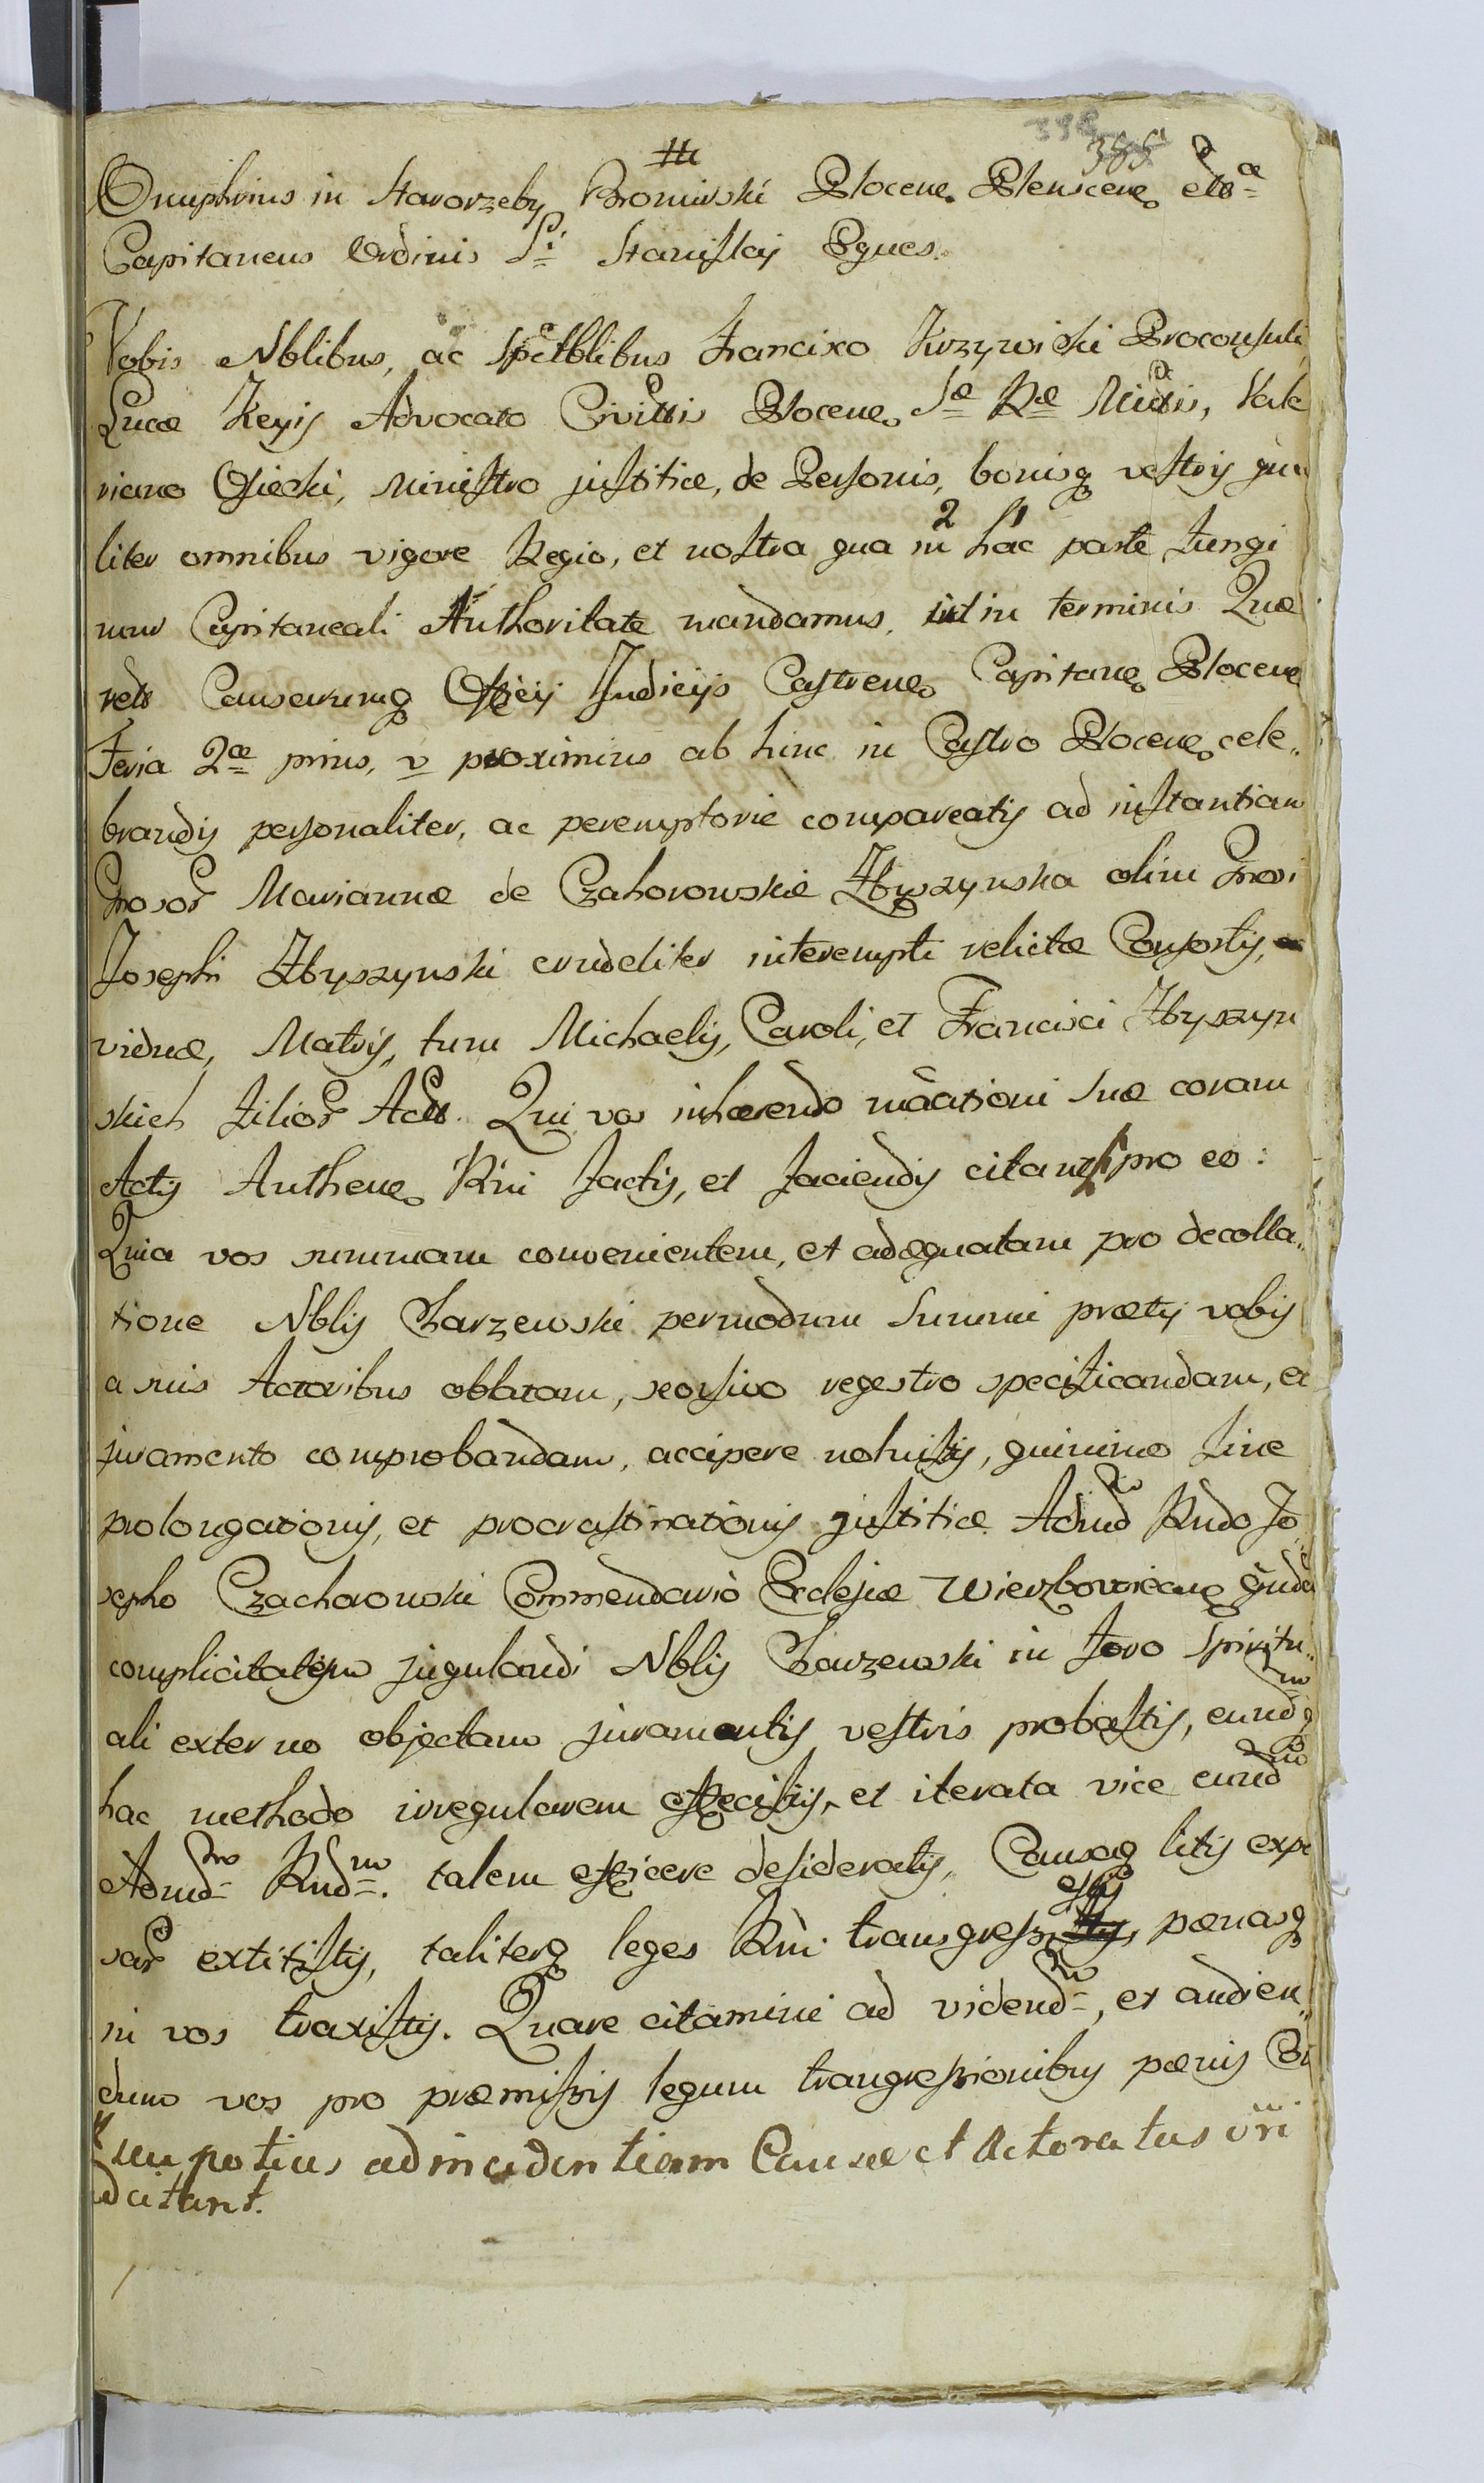 385
Onuphrius in Starorzeby Bromirski Plocen. Plenscen. etc
Capitaneus Ordinis Sti Stanislaj Eques.
Vobis Nblibus, ac Spctblibus Francisco Krzywicki Proconsuli,
Lucæ Advocato Civittis Plocen. Sæ Ræ Mttis, Vale
riano Osiecki, Ministro justitiæ, de Personis, bonisq vestrys gna
liter omnibus vigore Regio, et nostra qua in hac parte fungi
mur Capitaneali Authoritate mandamus. ut in terminis Quæ
rel Causarumq Officij Judicijs Castren. Capitan. Plocen
Feria 2æ prius, v proximius ab hinc in Castro Plocen. cele„
brandis personaliter, ac peremptorie compareatis ad instantiam
Gnosor Mariannæ de Czahorowskie Zbyszynska olim Gnosi
Josephi Zbyszynski crudeliter interempti relictæ Consortis,
viduæ, Matris, tum Michaelis, Caroli, et Francisci Zbyszyn
skich filior Actt. Qui vos inhærendo mãationi suæ coram
Actis Authen. Rni factis, et faciendis citant pro eo:
Quia vos summam convenientem, et adæquatam pro decolla„
tione Nblis Zarzewski permodum summi prætij vobis
a suis Actoribus oblatam, seorsivo regestro specificandam, et
juramento comprobandam, accipere noluistis, quinimo sine
prolongationis, et procrastinationis justitiæ Admd Rndo Jo
sepho Czachorowski Commendario Ecclesiæ Wierzbowiecen
complicitatem jugulandi Nblis Zarzewski in foro Spiritu„
ali externo objectam juramentis vestris probastis, eund
hac methodo irregularem effecistis, et iterata vice eundm
Admdm Rndm. talem efficere desideratis, Causaq litis expe
sar extitistis, taliterq leges Rni transgressi estis pænasq
in vos traxistis. Quare citamini ad videndm, et audien„
dum vos pro præmissis legum transgressionibus pænis
seu potius ad incidentiam Causæ et Actoratus vri
adcitant.